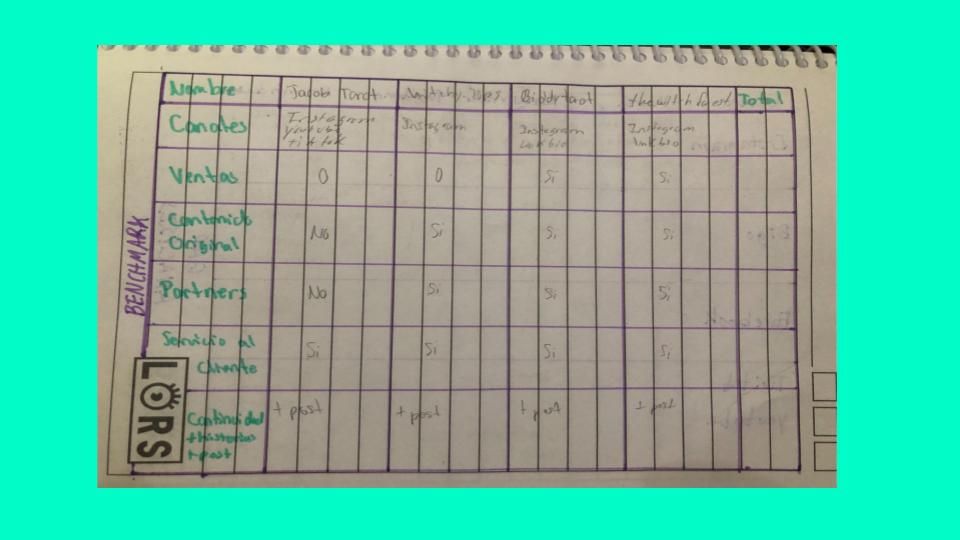 BENCHMARK
LORS
Nombre Jacobi Tarot Biddytarot Total
Canales Instagram youtube tik tok Instagram Instagram link bio Instagram link bio
Ventas 0 0 Si Si
Contenido Original No Si Si Si
Partners No Si Si Si
Servicio al Cliente Si Si Si Si
Continuidad + historias + post + post + post + post + post